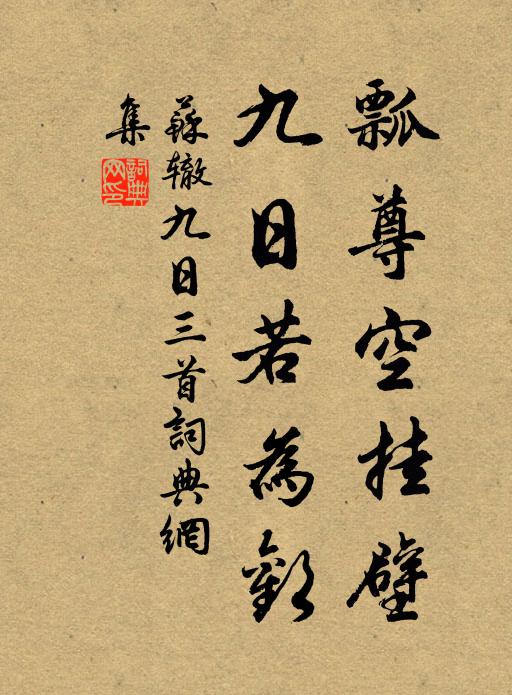 瓢尊空挂壁
九日若為歡
蘇辙九日三首詞典網
集
詞典
网印